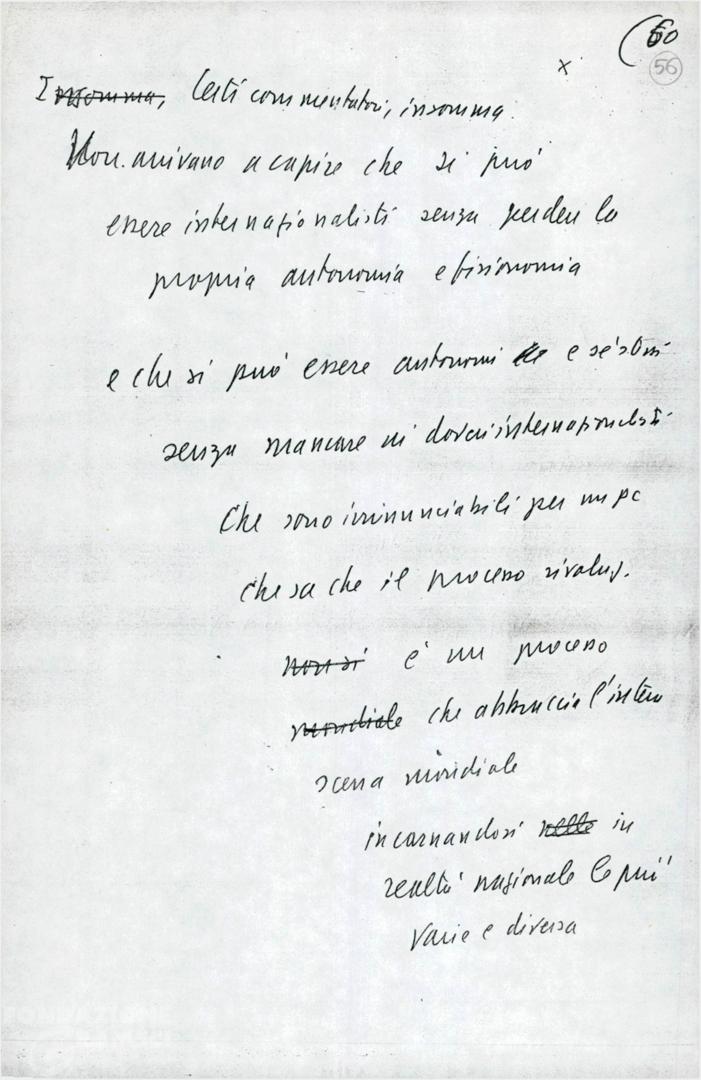 (60
56
x
Insomma, Certi commentatori, insomma.
Non arrivano a capire che si può
essere internazionalisti senza perdere la
propria autonomia e fisionomia
e che si può essere autonomi e se stessi
senza mancare ai doveri internazionalisti
Che sono irrinunciabili per un pc
che sa che il processo rivoluz.
non si è un processo
mondiale che abbraccia l'intera
scena mondiale
incarnandosi nelle in
realtà nazionale le più
varie e diversa